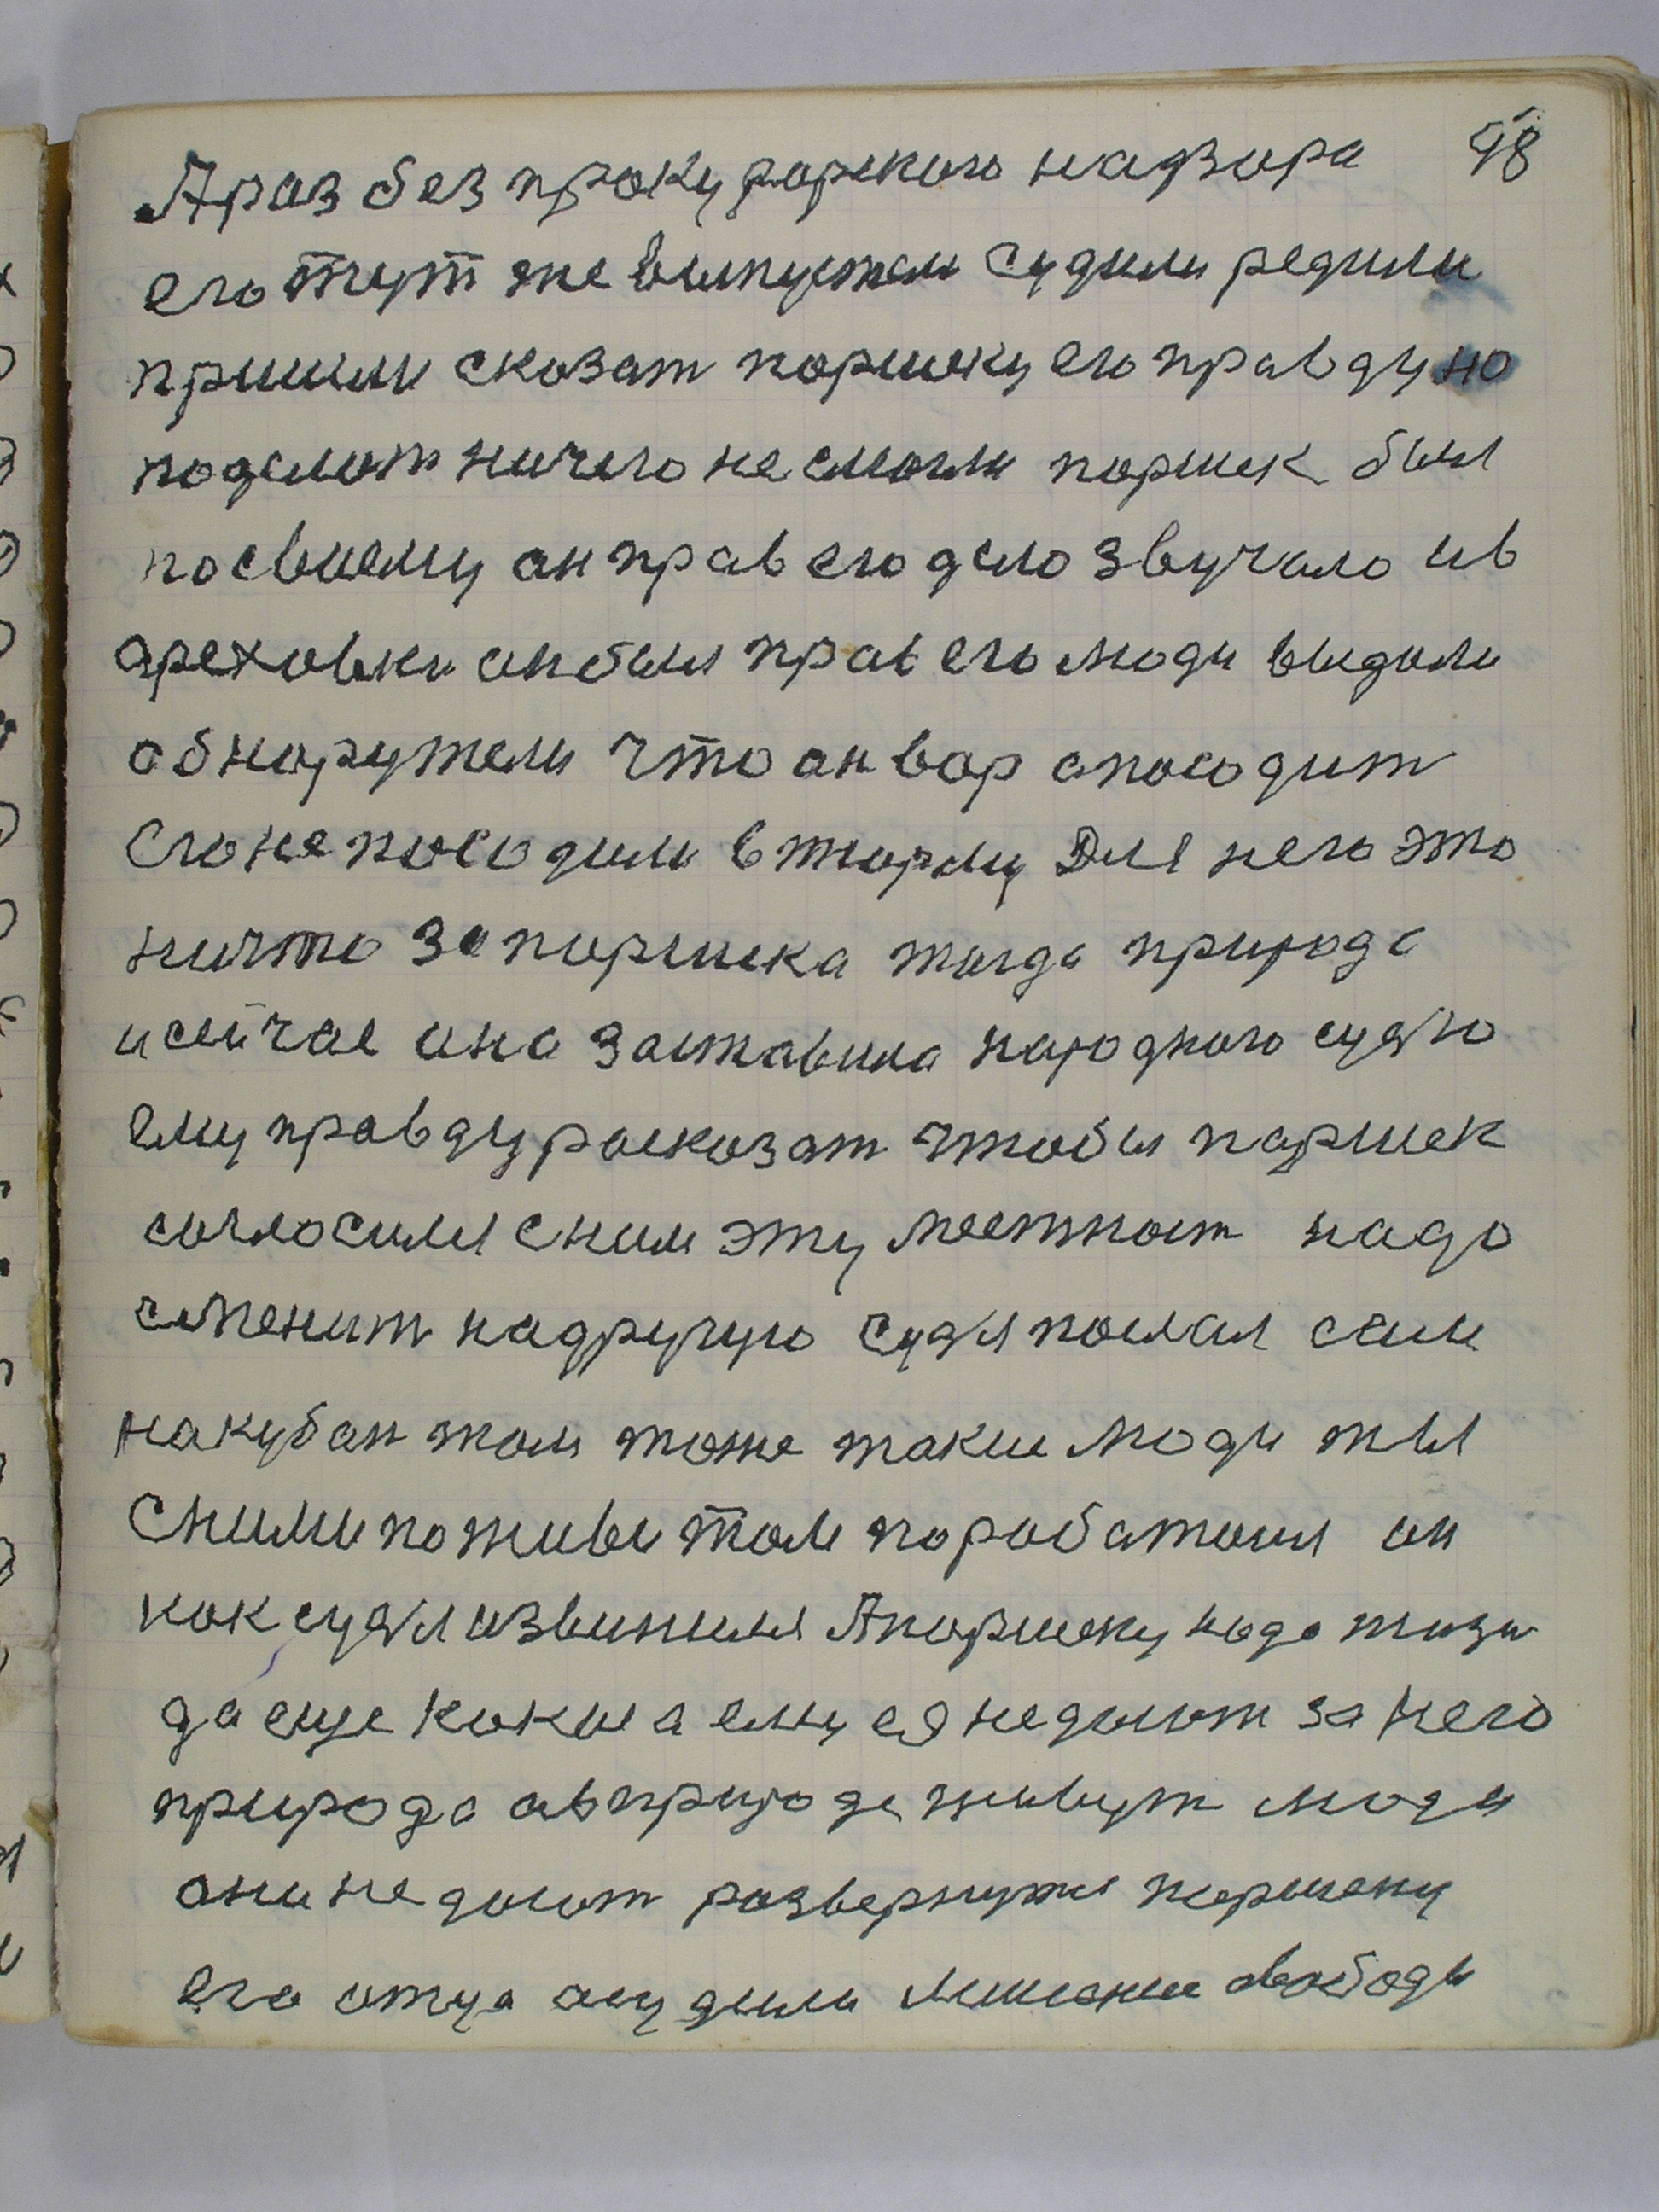 98
Араз без прокурорского надзора
его тут же выпустели судили редили
пришли сказат паршеку его правду но
поделат ничего несмогли паршек был
посвоему он прав его дело звучало ив
ареховки он был прав его люди выдали
обнаружели что он вор апосодит
его не посодили втюрму Для него это
ничто за паршека тогда природа
исейчас она заставила народного судю
ему правду расказат чтобы паршек
согласился сним эту местност надо
сменит надругую судя послал сам
накубан там тоже такие люди ты
Сними поживи там поработаш он
как судя извинился Апаршеку надо жизн
да еще какая а ему ее недают за него
природа авприроде живут люди
они не дают развернутся паршеку
его отца осудили лишение свободы